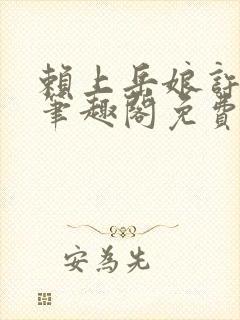 賴上岳娘許
筆趣閣免費
安為先